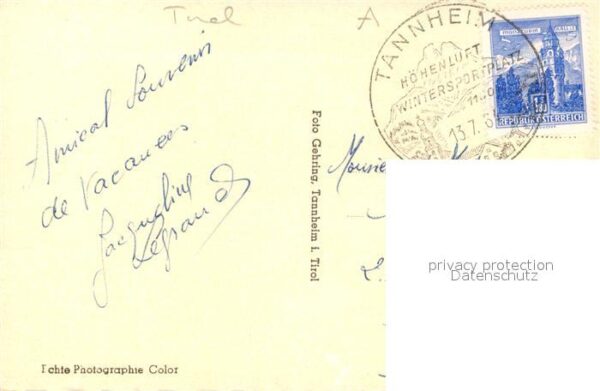 Tirol
A
TANNHEIM
HÖHENLUFT
WINTERSPORTPLATZ
13.7.6
REPUBLIK ÖSTERREICH
Amical Souvenir
de Vacances
Jacqueline
Legrand
Foto Gehring, Tannheim i. Tirol
Monsie
privacy protection
Datenschutz
Echte Photographie Color